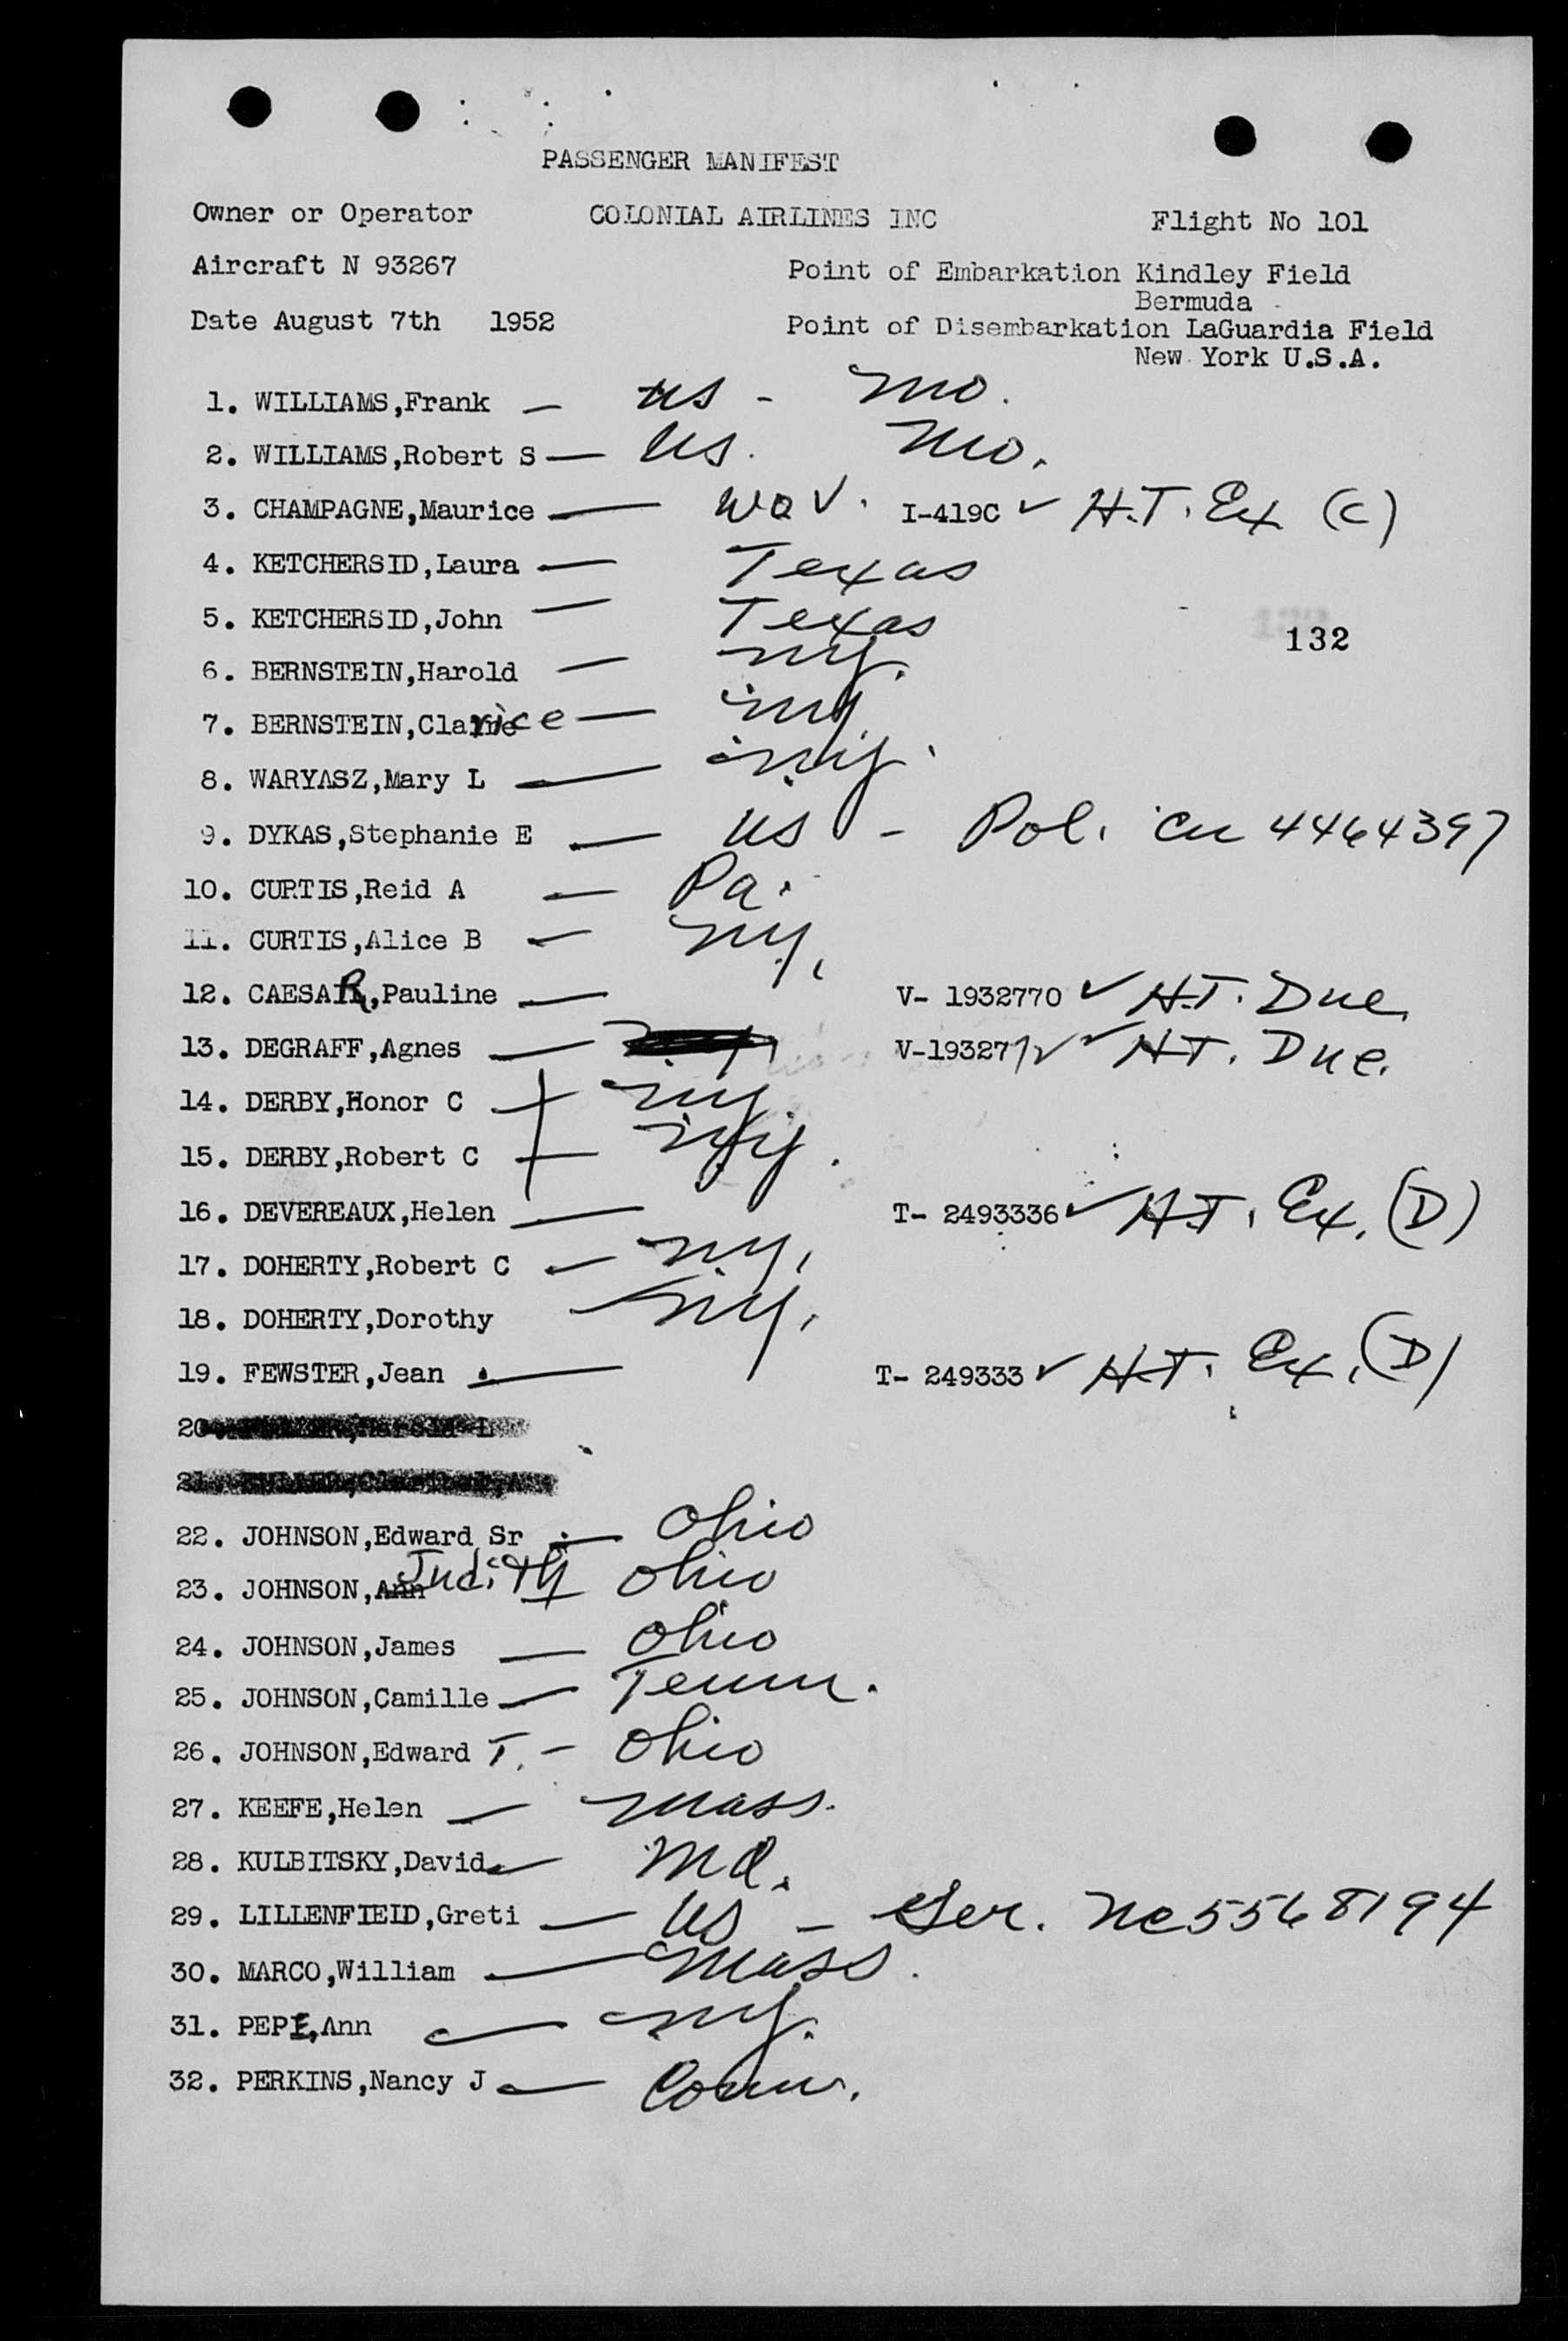 PASSENGER MANIFEST
Owner or Operator COLONIAL AIRLINES INC Flight No 101
Aircraft N 93267 Point of Embarkation Kindley Field
Bermuda
Date August 7th 1952 Point of Disembarkation LaGuardia Field
New York U.S.A.
1. WILLIAMS,Frank — US - Mo.
2. WILLIAMS,Robert S — US. Mo.
3. CHAMPAGNE,Maurice — I-419C ✓ H.T. Ex (C)
4. KETCHERSID,Laura — Texas
5. KETCHERSID,John — Texas
132
6. BERNSTEIN,Harold — NY.
7. BERNSTEIN,Clarice — NY
8. WARYASZ,Mary L — NY.
9. DYKAS,Stephanie E — US - Pol. 4464397
10. CURTIS,Reid A — Pa.
11. CURTIS,Alice B — NY.
12. CAESAR,Pauline — V- 1932770 ✓ H.T. Due.
13. DEGRAFF,Agnes — ✓ H.T. Due.
14. DERBY,Honor C — NY.
15. DERBY,Robert C — NY.
16. DEVEREAUX,Helen — T- 2493336 ✓ H.T. Ex. (D)
17. DOHERTY,Robert C — NY.
18. DOHERTY,Dorothy — NY.
19. FEWSTER,Jean — T- 249333 ✓ H.T. Ex. (D)
20.
21.
22. JOHNSON,Edward Sr — Ohio
23. JOHNSON,Ann Judith Ohio
24. JOHNSON,James — Ohio
25. JOHNSON,Camille — Tenn.
26. JOHNSON,Edward T. — Ohio
27. KEEFE,Helen — Mass.
28. KULBITSKY,David — Md.
29. LILLENFIEID,Greti — US - Ger. Nc 5568194
30. MARCO,William — Mass.
31. PEPE,Ann — NY.
32. PERKINS,Nancy J — Conn.